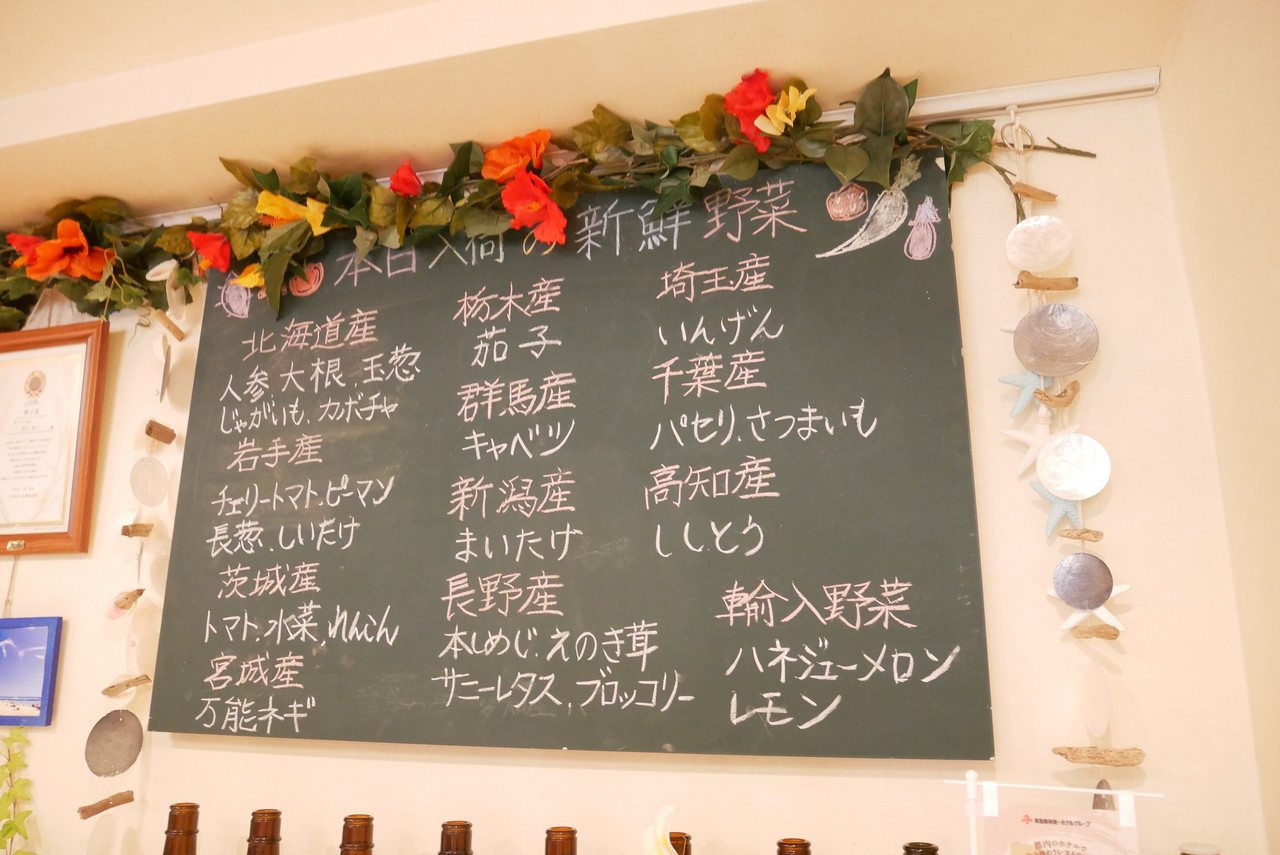 本日入荷の新鮮野菜
北海道産
人参、大根、玉葱
じゃがいも、カボチャ
岩手産
チェリートマト、ピーマン
長葱、しいたけ
茨城産
トマト、水菜、れんこん
宮城産
万能ネギ
栃木産
茄子
群馬産
キャベツ
新潟産
まいたけ
長野産
本しめじ、えのき茸
サニーレタス、ブロッコリー
埼玉産
いんげん
千葉産
パセリ、さつまいも
高知産
ししとう
輸入野菜
ハネジューメロン
レモン
都内のホテルで